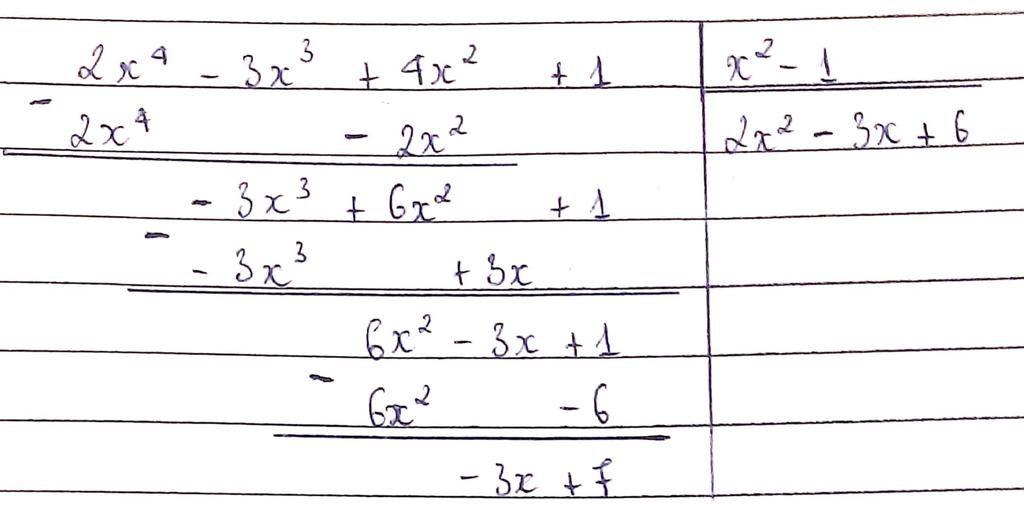 2x⁴ - 3x³ + 4x² + 1 | x² - 1
- 2x⁴ - 2x² | 2x² - 3x + 6
- 3x³ + 6x² + 1
- - 3x³ + 3x
6x² - 3x + 1
- 6x² - 6
- 3x + 7